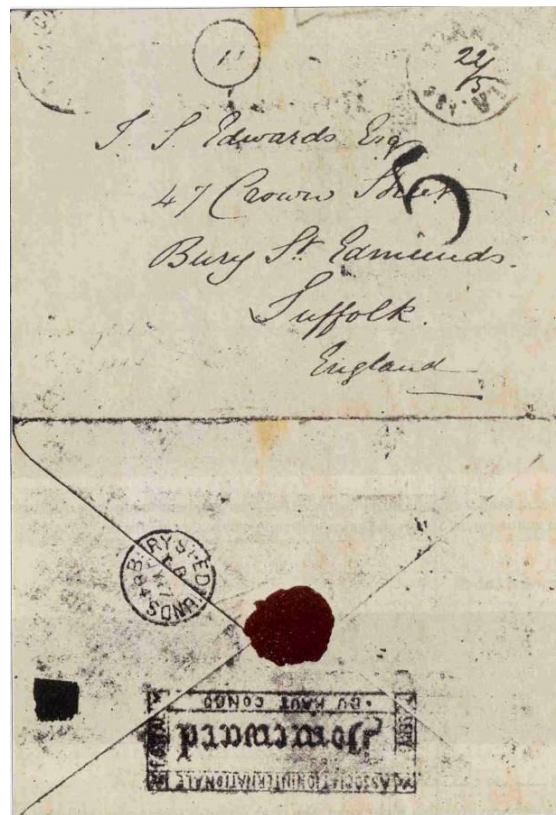 22/5
J. S. Edwards Esq
47 Crown Street
Bury St. Edmunds.
Suffolk.
England
5
BURY ST. EDMUNDS
ASSOCIATION INTERNATIONALE
Homeward
DU HAUT CONGO